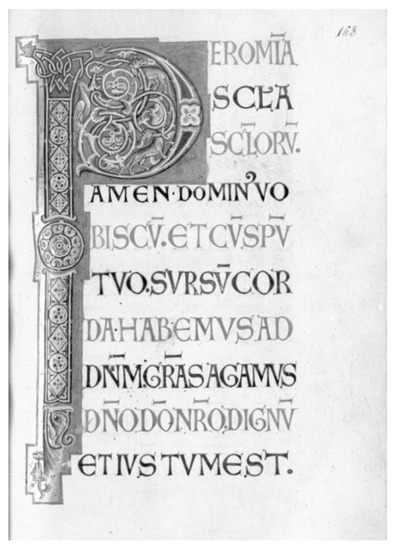 168
PEROM̄IA
SCL̄A
SCL̄ORV̄.
AMEN·DOMINꝰVO
BISCV̄.ETCV̄.SPV̄
TVO.SVRSV̄COR
DA·HABEMVSAD
DN̄M.GR̄ASAGAMVS
DN̄O.DŌNR̄O.DIGNV̄
ETIVSTVMEST.